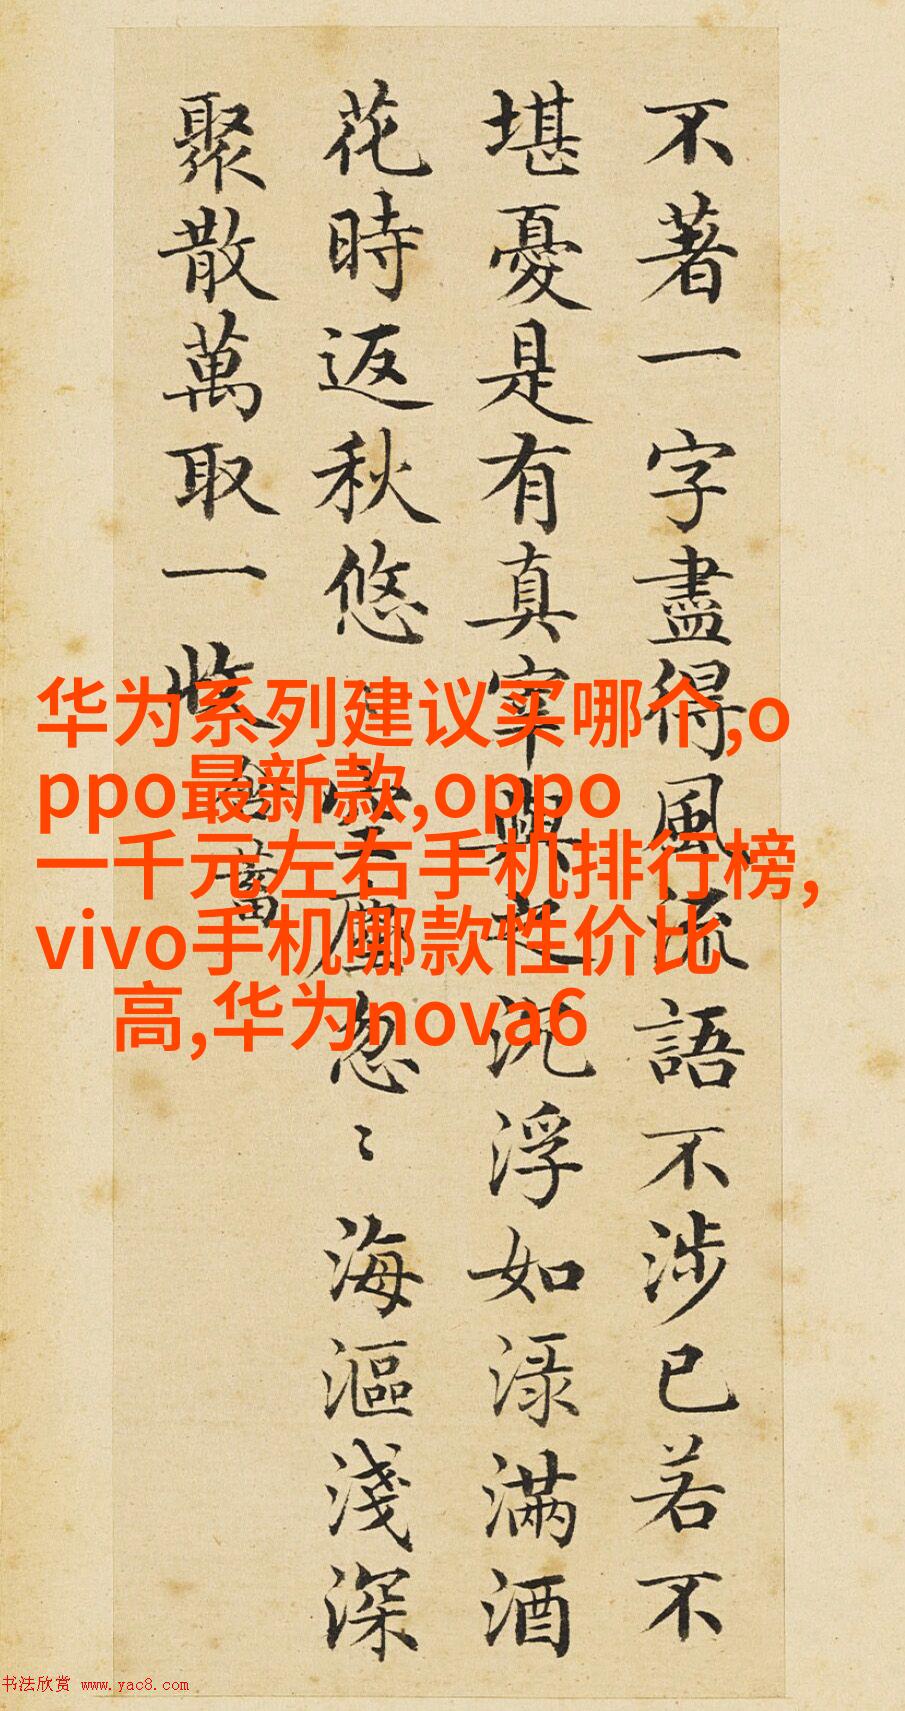 不著一字盡得風流語不涉已若不
堪憂是有真宰與之沉浮如渌滿酒
花時返秋悠〻空塵忽〻海漚淺深
聚散萬取一收
含蓄
华为系列建议买哪个,o
ppo最新款,oppo
一千元左右手机排行榜,
vivo手机哪款性价比
高,华为nova6
书法欣赏 www.yac8.com